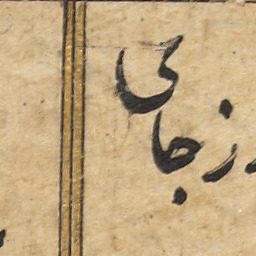 ز جای